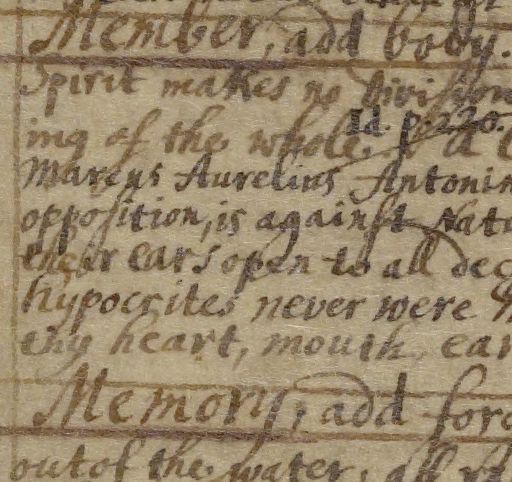 Member, add body.
Spirit makes no division
Id. p. 220.
ing of the whole.
Marcus Aurelius Antonin
opposition, is against Natu
their ears open to all dec
hypocrites never were
thy heart, mouth, ear
Memory, add forg
out of the water, all